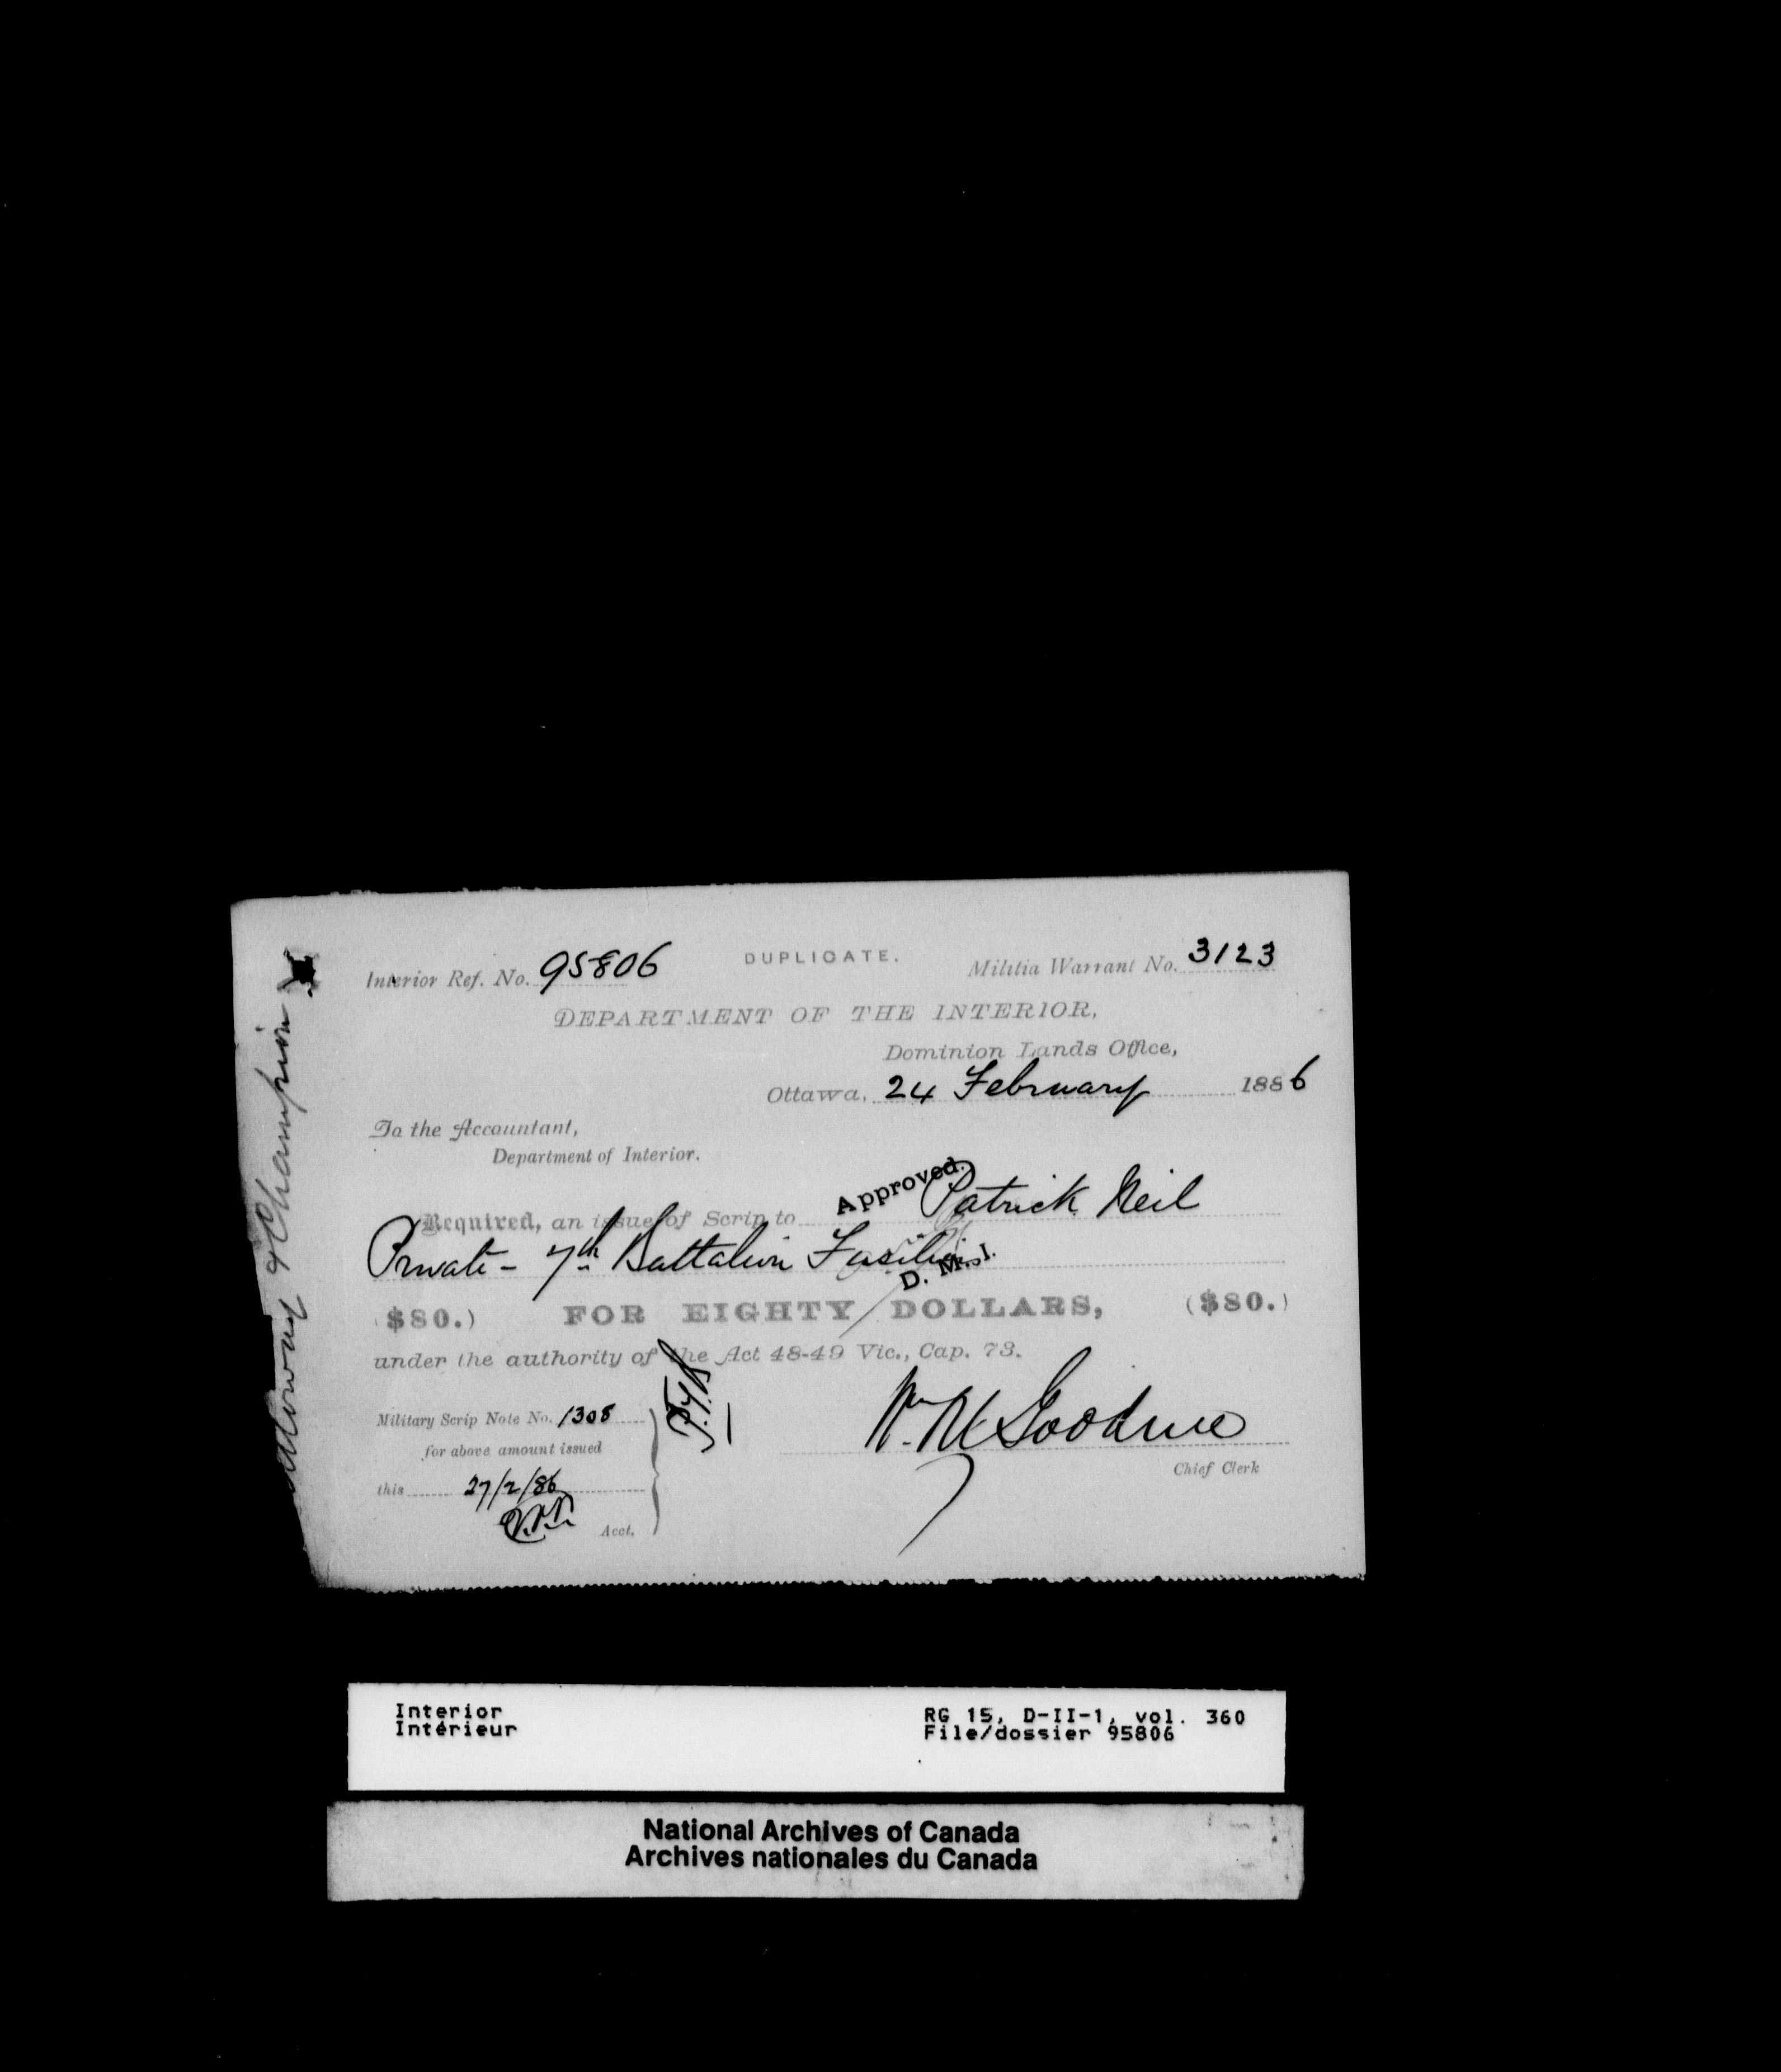 Interior Ref. No. 95806
DUPLICATE.
Militia Warrant No. 3123
DEPARTMENT OF THE INTERIOR,
Dominion Lands Office,
Ottawa, 24 February 1886
To the Accountant,
Department of Interior.
Approved.
Required, an issue of Scrip to Patrick Neil
Private - 7th Battalion Fusiliers
D. M. I.
$80.) FOR EIGHTY DOLLARS, ($80.)
under the authority of the Act 48-49 Vic., Cap. 73.
Military Scrip Note No. 1308
for above amount issued
this 27/2/86
Acct.
Wm M Goodeve
Chief Clerk
Alloway & Champion
Interior
Intérieur
RG 15, D-II-1, vol. 360
File/dossier 95806
National Archives of Canada
Archives nationales du Canada